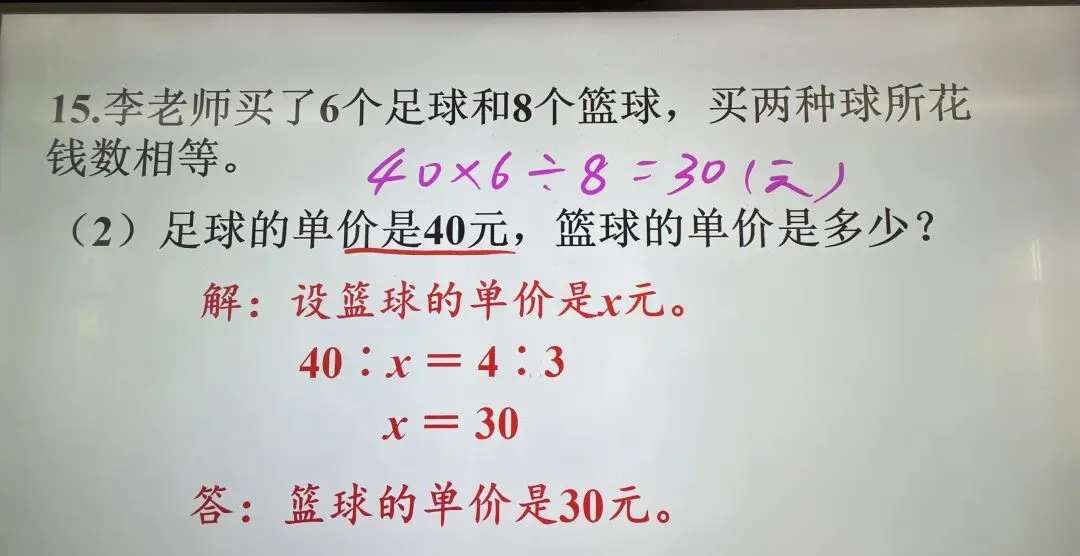 15.李老师买了6个足球和8个篮球，买两种球所花
钱数相等。
40×6÷8=30(元)
（2）足球的单价是40元，篮球的单价是多少？
解：设篮球的单价是x元。
40∶x＝4∶3
x＝30
答：篮球的单价是30元。